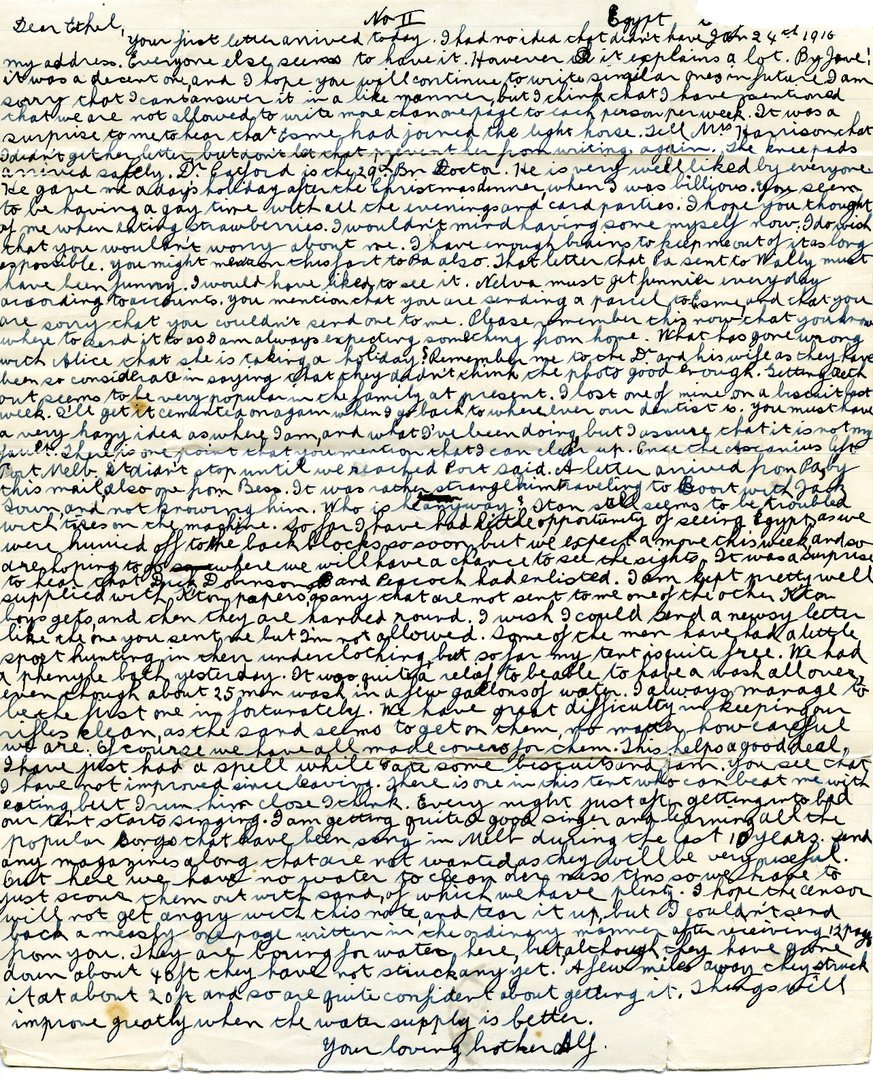 Dear Ethel, No II Egypt
Your first letter arrived today. I had no idea that didn't have Jan 24th 1916
my address. Everyone else seems to have it. However it explains a lot. By Jove!
it was a decent one, and I hope you will continue to write similar ones in future. I am
sorry that I cant answer it in a like manner, but I think that I have mentioned
that we are not allowed to write more than one page to each person per week. It was a
surprise to me to hear that Esme had joined the light horse. Tell Mrs Harrison that
I didn't get her letter but don't let that prevent her from writing again. The knee pads
arrived safely. Dr Catford is the 29th Bn Doctor. He is very well liked by everyone.
He gave me a days holiday after the Christmas dinner, when I was billious. You seem
to be having a gay time with all the evenings and card parties. I hope you thought
of me when eating strawberries. I wouldn't mind having some myself now. I do wish
that you wouldn't worry about me. I have enough brains to keep me out of it as long
as possible. You might mention this fact to Pa also. That letter that Pa sent to Wally must
have been funny. I would have liked to see it. Nelva must get funnier every day
according to accounts. You mention that you are sending a parcel to Esme, and that you
are sorry that you couldn't send one to me. Please remember this now that you know
where to send it to as I am always expecting something from home. What has gone wrong
with Alice that she is taking a holiday? Remember me to the Dr and his wife as they have
been so considerate in saying that they didn't think the photo good enough. Getting teeth
out seems to be very popular in the family at present. I lost one of mine on a biscuit last
week. I'll get it cemented on again when I go back to where ever our dentist is. You must have
a very hazy idea as where I am, and what I've been doing, but I assure that it is not my
fault. There is one point that you mention that I can clear up. Once the Ascanius left
Port Melb, it didn't stop until we reached Port Said. A letter arrived from Pa by
this mail, also one from Bess. It was rather strange him traveling to Boort with Jack
Gown, and not knowing him. Who is he anyway? Stan still seems to be troubled
with tires on the machine. So far I have had little opportunity of seeing Egypt, as we
were hurried off to the back blocks so soon, but we expect a move this week and so
are hoping to go where we will have a chance to see the sights. It was a surprise
to hear that Dick Dobinson and Peacock had enlisted. I am kept pretty well
supplied with Kton papers, as any that are not sent to me one of the other Kton
boys gets, and then they are handed round. I wish I could send a newsy letter
like the one you sent me but I'm not allowed. Some of the men have had a little
sport hunting in their underclothing, but so far my tent is quite free. We had
a phenyle bath yesterday. It was quite a relief to be able to have a wash all over,
even though about 25 men wash in a few gallons of water. I always manage to
be the first one in fortunately. We have great difficulty in keeping our
rifles clean, as the sand seems to get on them, no matter how careful
we are. Of course we have all made covers for them. This helps a good deal,
I have just had a spell while I ate some biscuits and jam. You see that
I have not improved since leaving. There is one in this tent who can beat me with
eating but I run him close I think. Every night just after getting into bed
our tent starts singing. I am getting quite a good singer and learning all the
popular songs that have been sung in Melb during the last 10 years. Send
any magazines along that are not wanted as they will be very useful.
Out here we have no water to clean our mess tins so we have to
just scour them out with sand, of which we have plenty. I hope the censor
will not get angry with this note, and tear it up, but I couldn't send
back a measly one page written in the ordinary manner after receiving 12 pages
from you. They are boring for water here, but although they have gone
down about 40 ft they have not struck any yet. A few miles away they struck
it at about 20 ft and so are quite confident about getting it. Things will
improve greatly when the water supply is better.
Your loving brother Alf.